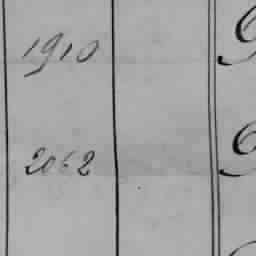 1910
2062